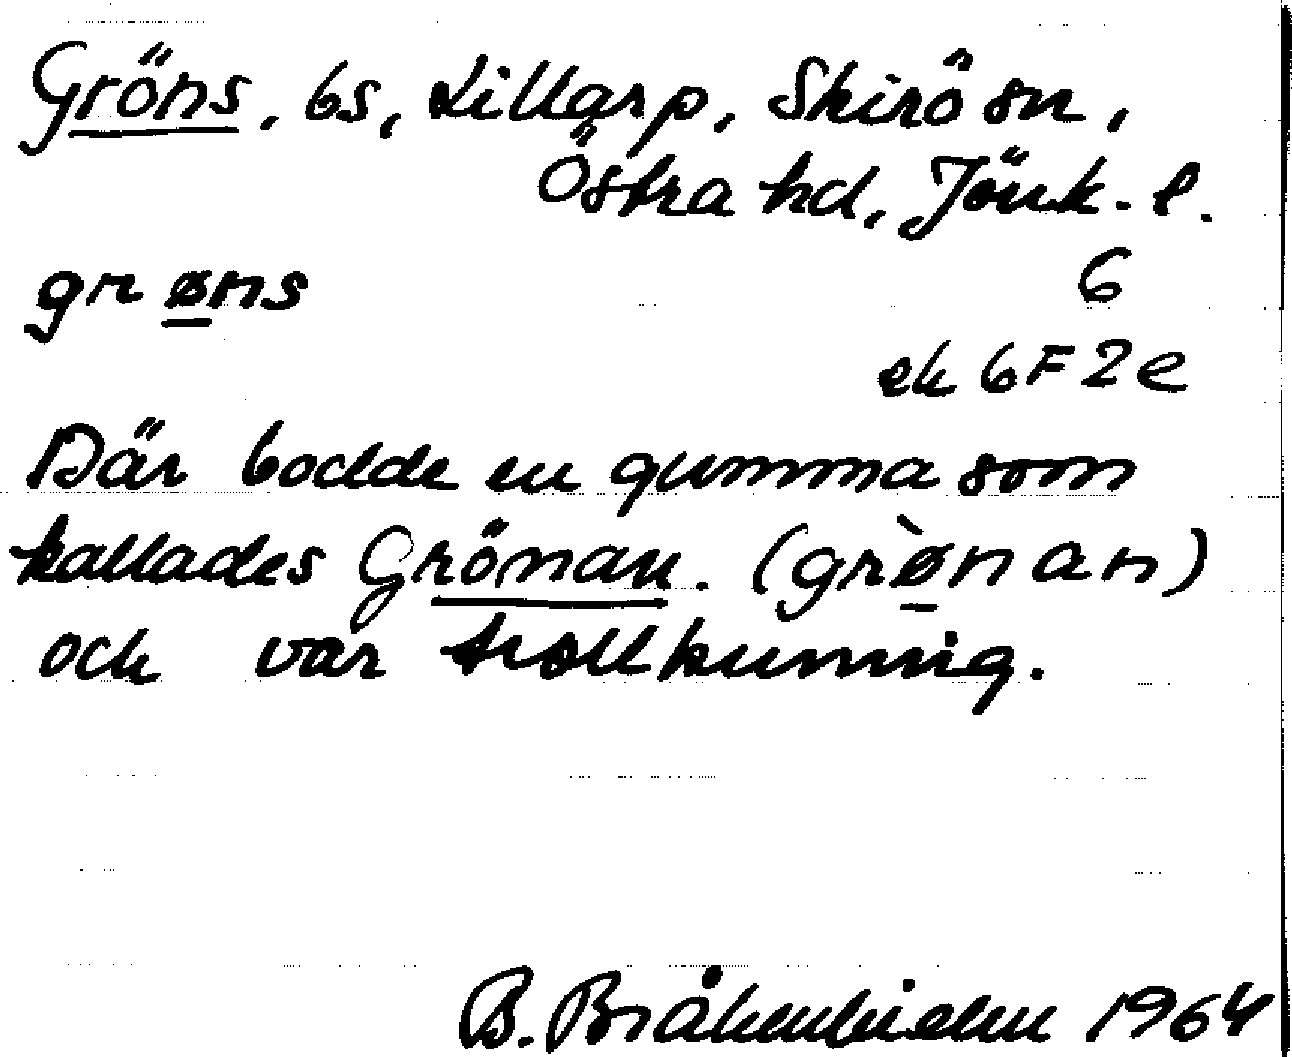 Gröns, bs, Lillarp, Skirö sn,
Östra hd, Jönk. l.
grøns
6
ek 6F2e
Där bodde en gumma som
kallades Grönan. (grø̀nan)
och var trollkunnig.
B. Bråkenhielm 1964